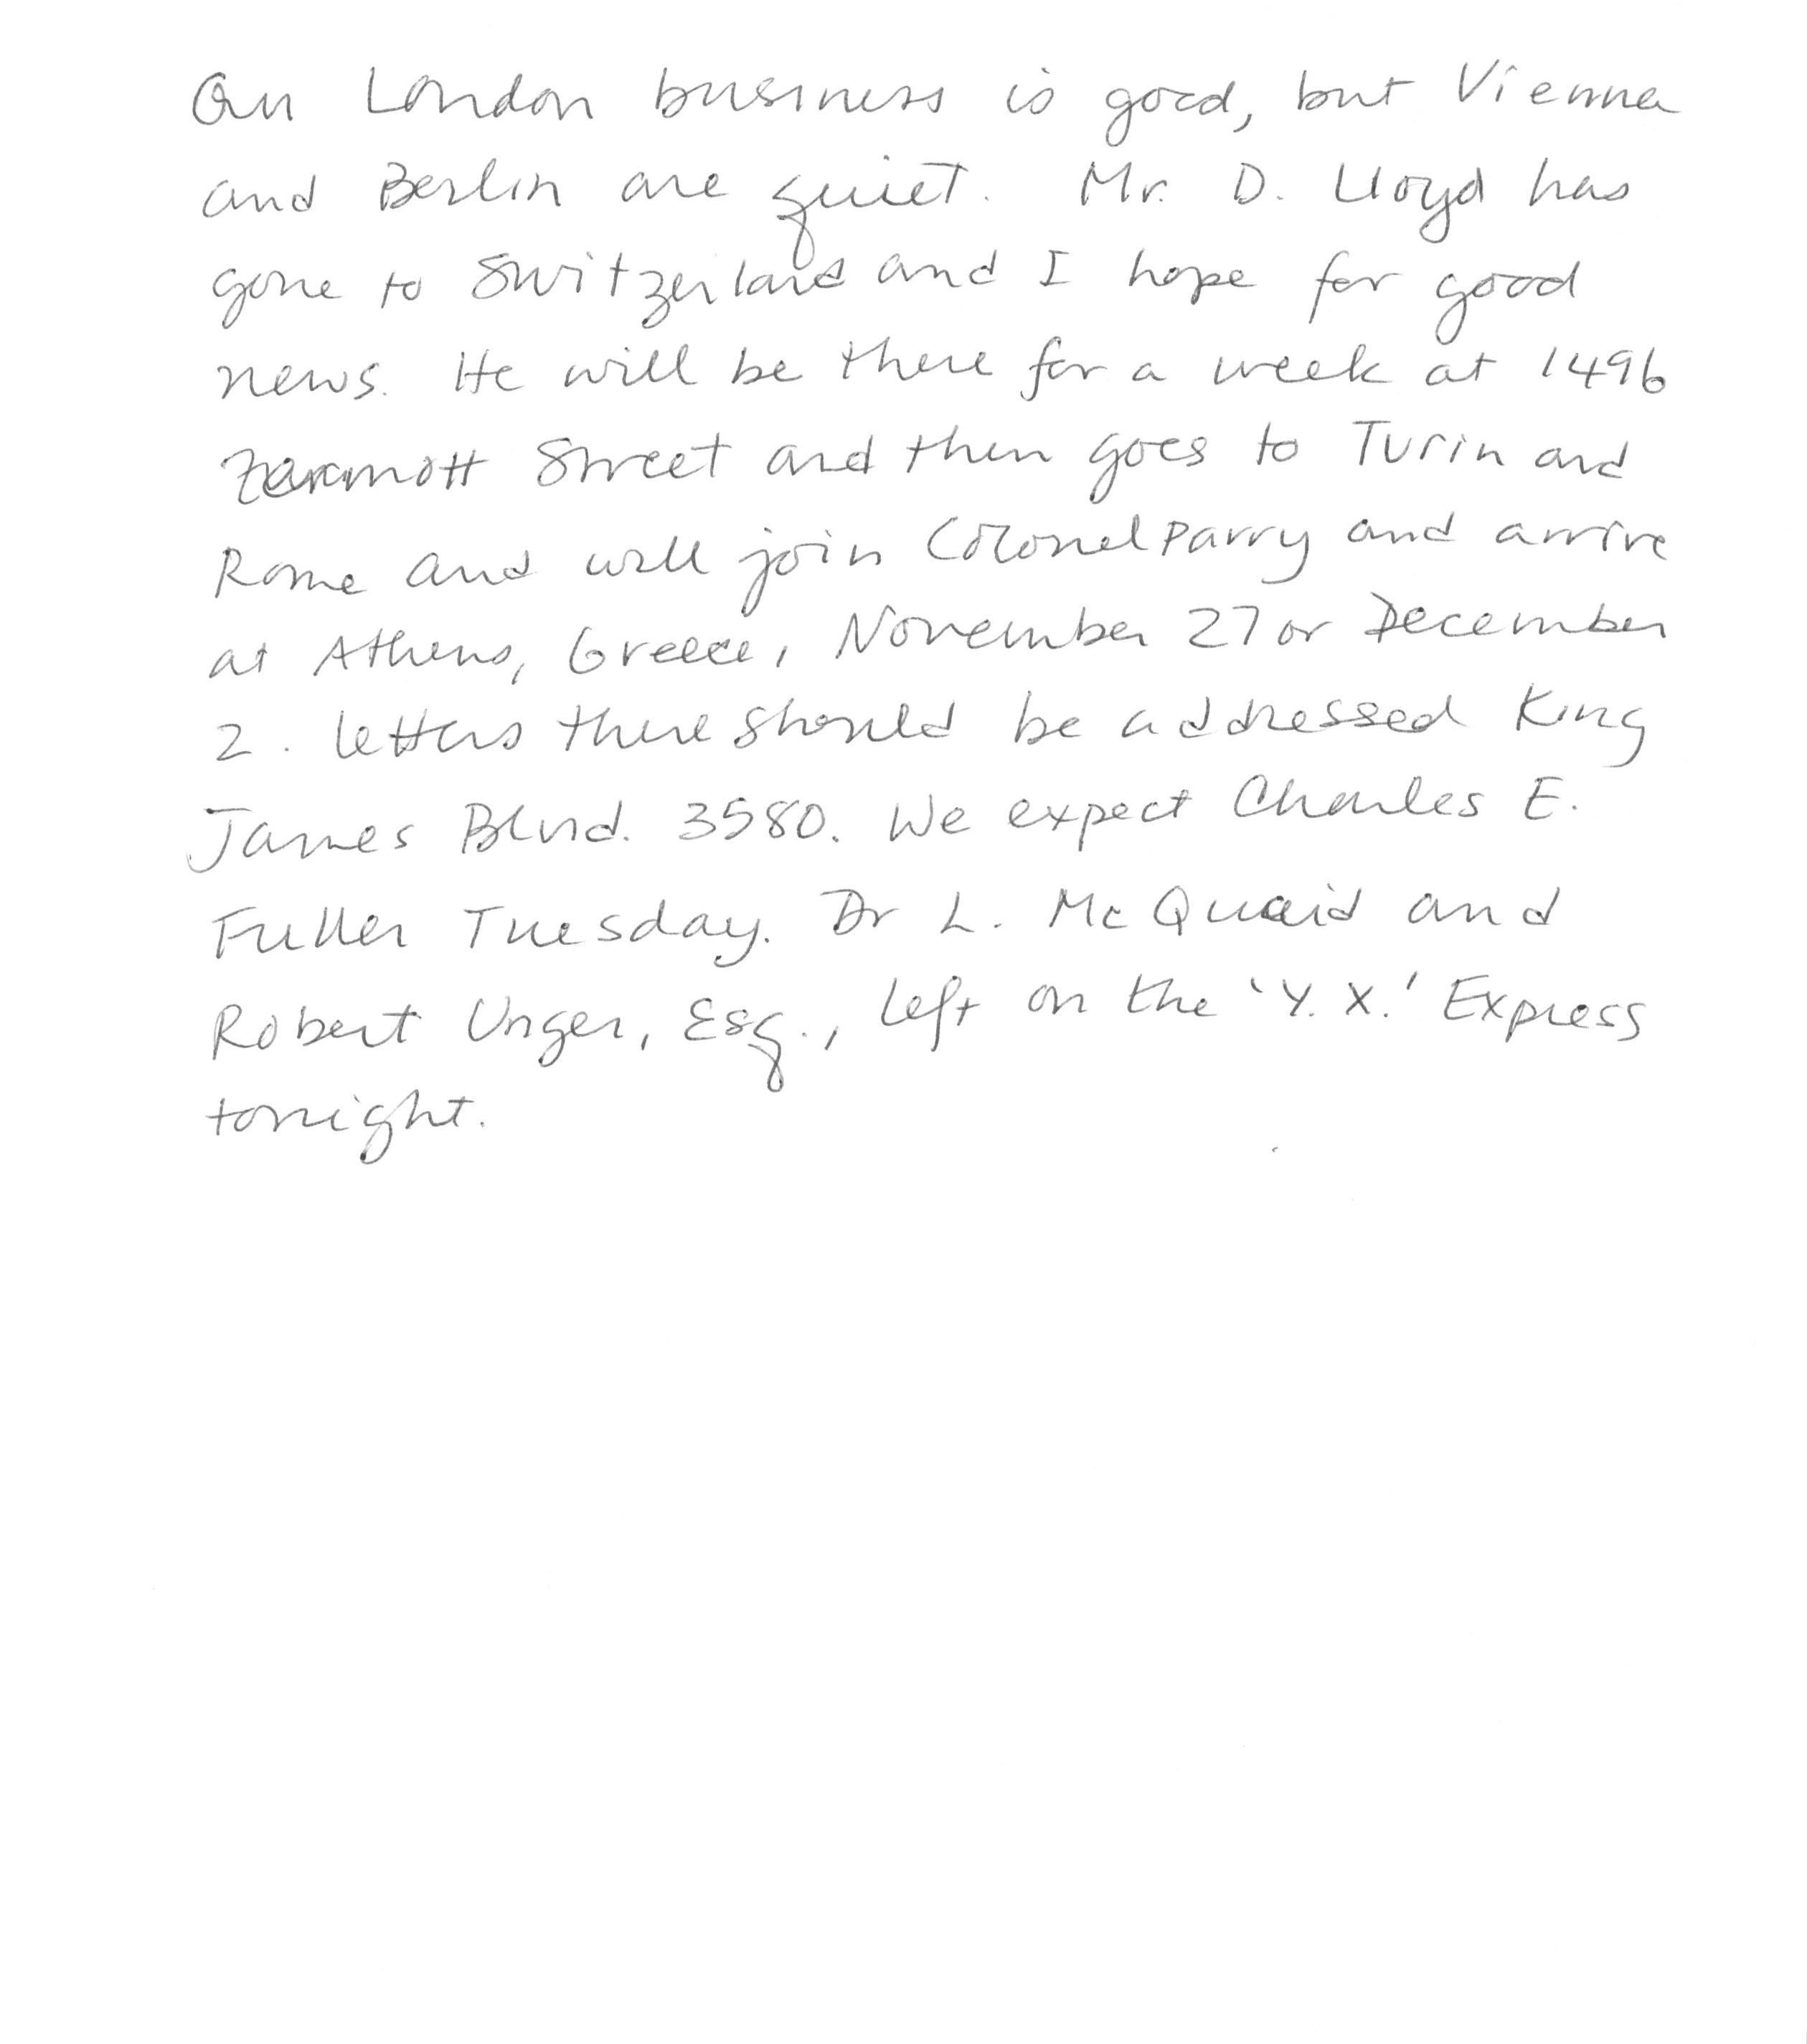 Our London business is good, but Vienna
and Berlin are quiet. Mr. D. Lloyd has
gone to Switzerland and I hope for good
news. He will be there for a week at 1496
Zermott Street and then goes to Turin and
Rome and will join Colonel Parry and arrive
at Athens, Greece, November 27 or December
2. Letters there should be addressed King
James Blvd. 3580. We expect Charles E.
Fuller Tuesday. Dr L. McQuaid and
Robert Unger, Esq., left on the 'Y.X.' Express
tonight.